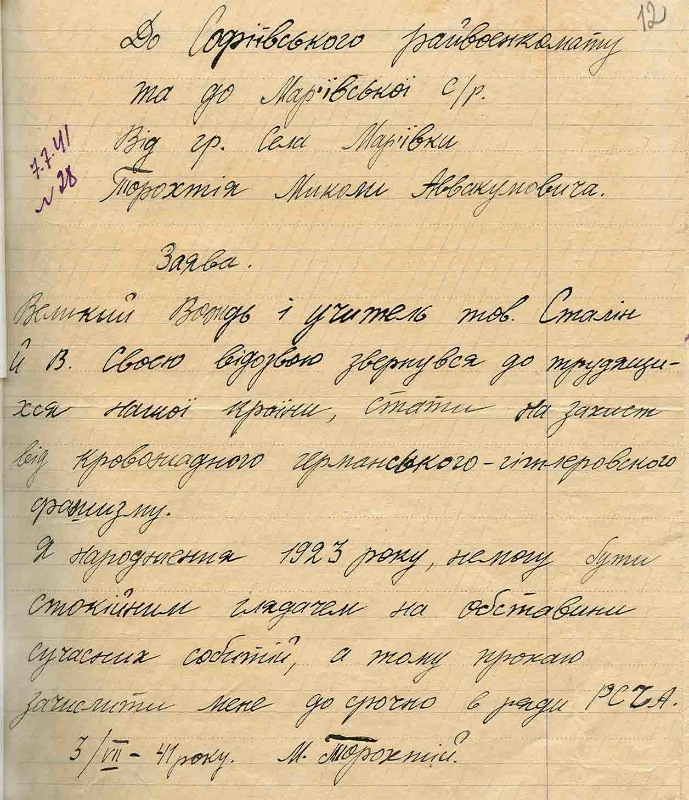 12
До Софіївського райвоєнкомату
та до Мар'ївської с/р.
Від гр. села Мар'ївки
7.7.41
№ 28
Торохтія Миколи Аввакумовича.
Заява.
Великий Вождь і учитель тов. Сталін
Й В. Своєю відозвою звернувся до трудящи-
хся нашої країни, стати на захист
від кровожадного германського-гітлеровского
фашизму.
Я народження 1923 року, немогу бути
спокійним глядачем на обставини
сучасних событій, а тому прохаю
зачислити мене до срочно в ряди РСЧА.
3/VII - 41 року. М. Торохтій.